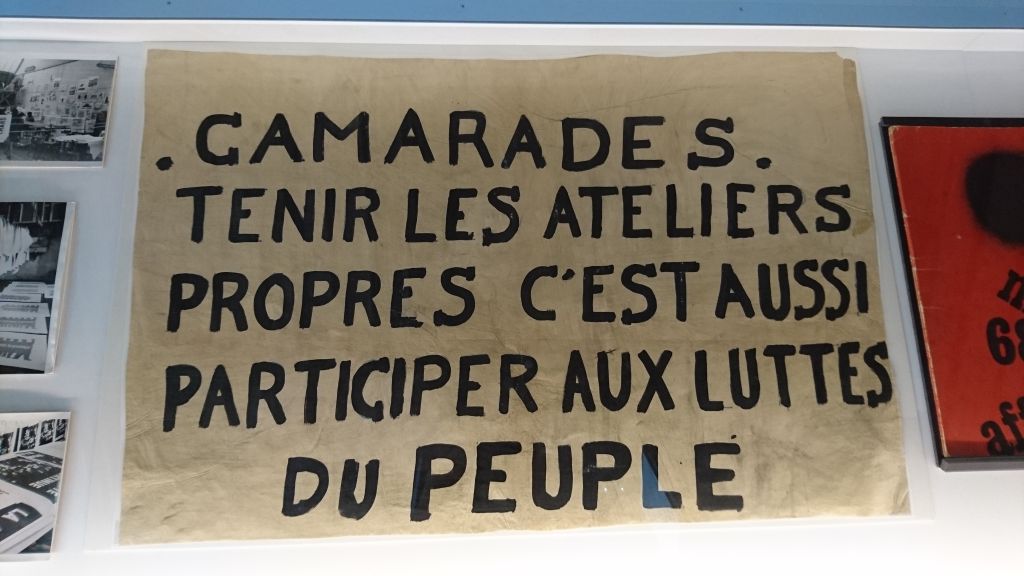 . CAMARADES.
TENIR LES ATELIERS
PROPRES C'EST AUSSI
PARTICIPER AUX LUTTES
DU PEUPLE
68